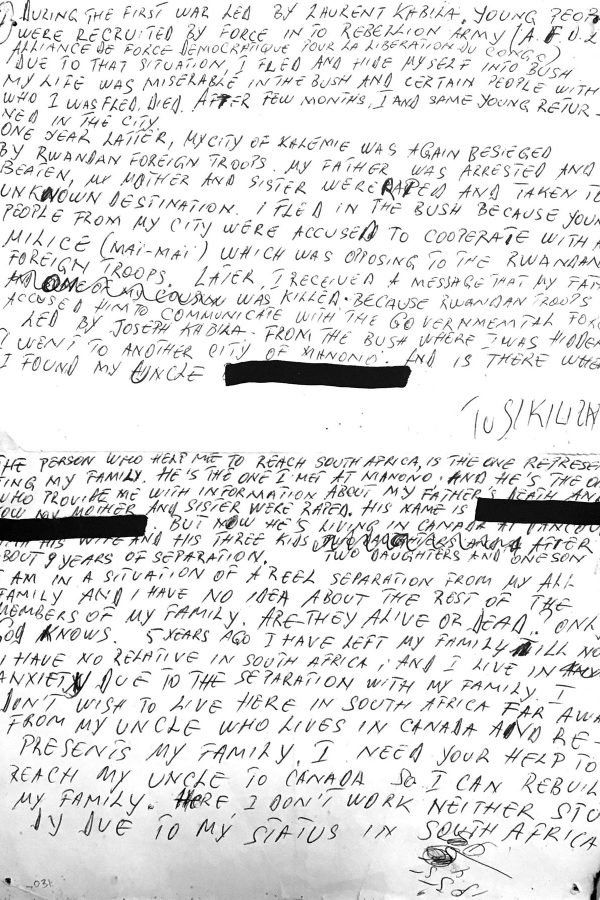 DURING THE FIRST WAR LED BY LAURENT KABILA, YOUNG PEOP
WERE RECRUITED BY FORCE IN TO REBELLION ARMY (A.F.D.L
ALLIANCE DE FORCE DEMOCRATIQUE POUR LA LIBERATION DU CONGO)
DUE TO THAT SITUATION, I FLED AND HIDE MYSELF INTO BUSH
MY LIFE WAS MISERABLE IN THE BUSH AND CERTAIN PEOPLE WITH
WHO I WAS FLED, DIED. AFTER FEW MONTHS, I AND SAME YOUNG RETUR-
NED IN THE CITY
ONE YEAR LATTER, MY CITY OF KALEMIE WAS AGAIN BESIEGED
BY RWANDAN FOREIGN TROOPS. MY FATHER WAS ARRESTED AND
BEATEN, MY MOTHER AND SISTER WERE RAPED AND TAKEN TO
UNKNOWN DESTINATION. I FLED IN THE BUSH BECAUSE YOUN
PEOPLE FROM MY CITY WERE ACCUSED TO COOPERATE WITH A
MILICE (MAÏ-MAÏ) WHICH WAS OPPOSING TO THE RWANDAN
FOREIGN TROOPS. LATER, I RECEIVED A MESSAGE THAT MY FAT
WAS KILLED. BECAUSE RWANDAN TROOPS
ACCUSED HIM TO COMMUNICATE WITH THE GOVERNMEMTAL FORC
LED BY JOSEPH KABILA. FROM THE BUSH WHERE I WAS HIDDEN
I WENT TO ANOTHER CITY OF MANONO. AND IS THERE WHER
I FOUND MY UNCLE
THE PERSON WHO HELP ME TO REACH SOUTH AFRICA, IS THE ONE REPRESEN
TING MY FAMILY. HE'S THE ONE I MET AT MANONO. AND HE'S THE ON
WHO PROVIDE ME WITH INFORMATION ABOUT MY FATHER'S DEATH AND
HOW MY MOTHER AND SISTER WERE RAPED. HIS NAME IS
. BUT NOW HE'S LIVING IN CANADA AT VANCOU
WITH HIS WIFE AND HIS THREE KIDS AFTER
ABOUT 9 YEARS OF SEPARATION. TWO DAUGHTERS AND ONE SON
I AM IN A SITUATION OF A REEL SEPARATION FROM MY ALL
FAMILY AND I HAVE NO IDEA ABOUT THE REST OF THE
MEMBERS OF MY FAMILY. ARE THEY ALIVE OR DEAD? ONL
GOD KNOWS. 5 YEARS AGO I HAVE LEFT MY FAMILY TILL NO
I HAVE NO RELATIVE IN SOUTH AFRICA, AND I LIVE IN
ANXIETY DUE TO THE SEPARATION WITH MY FAMILY. I
DON'T WISH TO LIVE HERE IN SOUTH AFRICA FAR AWA
FROM MY UNCLE WHO LIVES IN CANADA AND RE-
PRESENTS MY FAMILY. I NEED YOUR HELP TO
REACH MY UNCLE TO CANADA SO I CAN REBUIL
MY FAMILY. HERE I DON'T WORK NEITHER STU
DY DUE TO MY STATUS IN SOUTH AFRICA